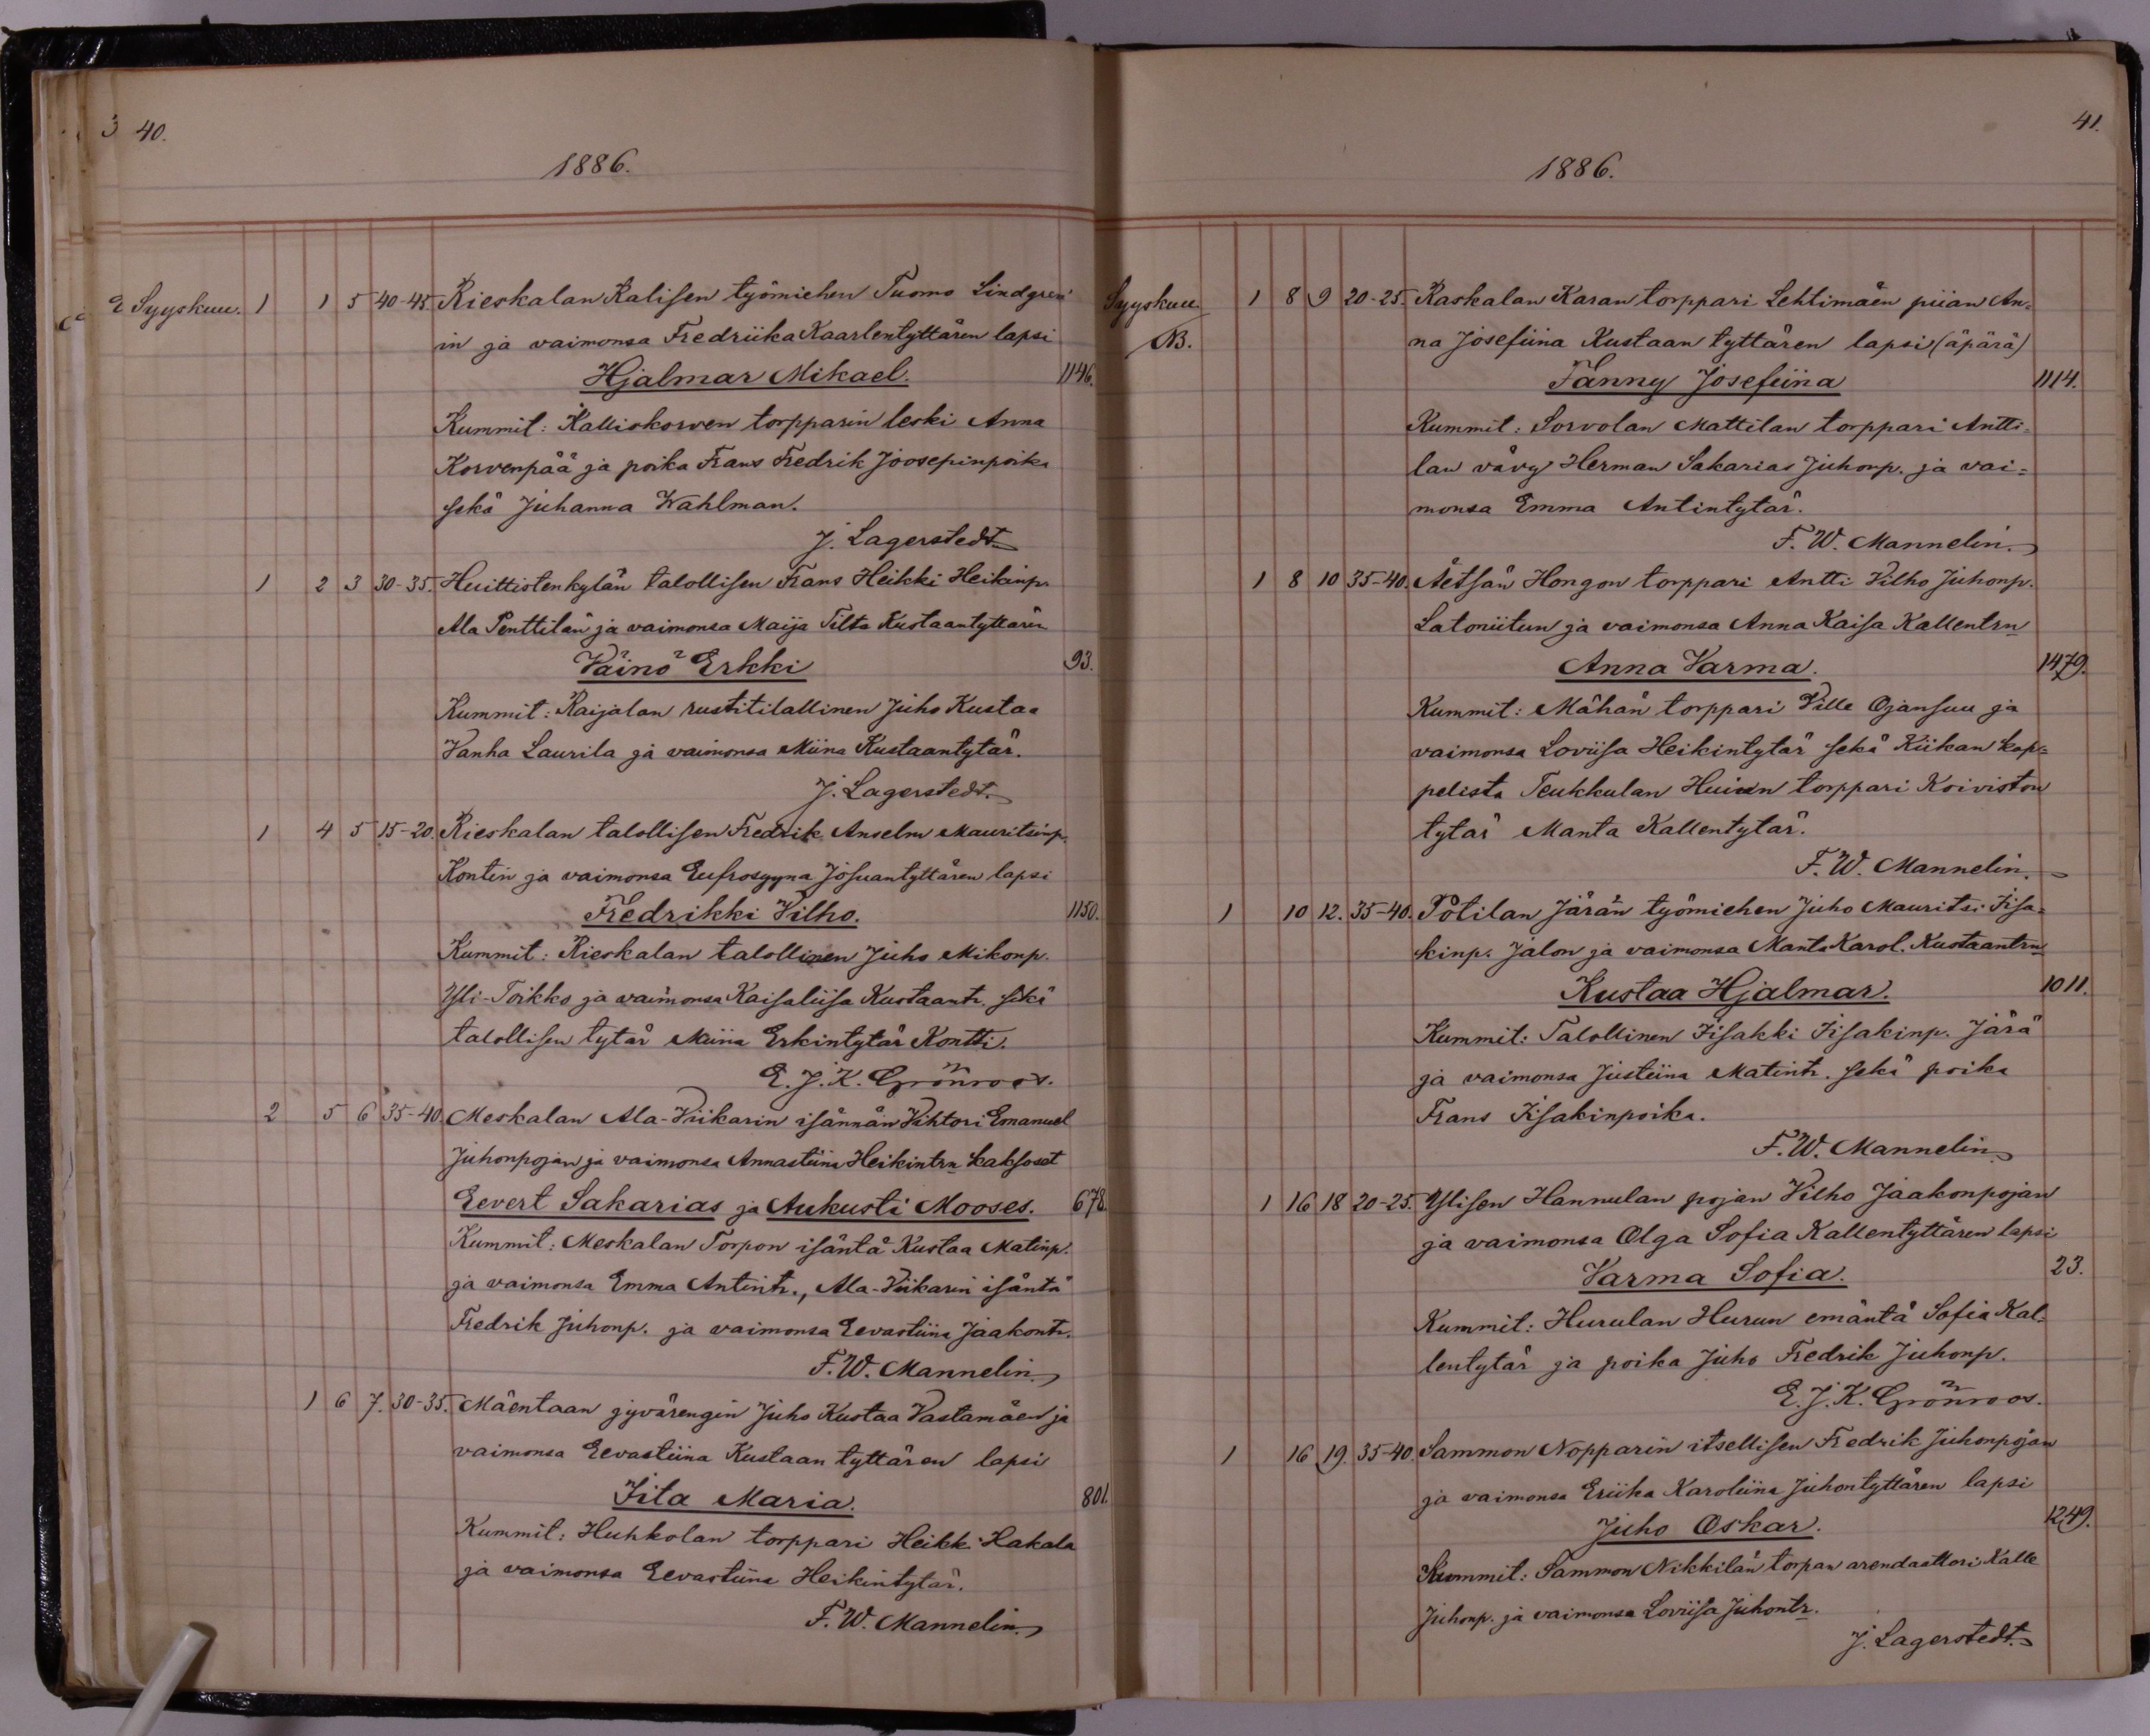 40.
1886.
Syyskuu. 1 1 5 40-45. Rieskalan Kalisen työmiehen Tuomo Lindgren'
in ja vaimonsa Fredriika Kaarlentyttären lapsi
Hjalmar Mikael. 1146.
Kummit: Kalliokorven torpparin leski Anna
Korvenpää ja poika Frans Fredrik Joosepinpoika
sekä Juhanna Wahlman.
J. Lagerstedt.
1 2 3 30-35. Huittistenkylän talollisen Frans Heikki Heikinp.
Ala Penttilän ja vaimonsa Maija Tilta Kustaantyttären
Väinö Erkki 93.
Kummit: Raijalan rustitilallinen Juho Kustaa
Vanha Laurila ja vaimonsa Miina Kustaantytär.
J. Lagerstedt.
1 4 5 15-20. Rieskalan talollisen Fredrik Anselm Mauritsinp.
Kontin ja vaimonsa Eufrosyyna Josuantyttären lapsi
Fredrikki Vilho. 1150.
Kummit: Rieskalan talollinen Juho Mikonp.
Yli-Toikko ja vaimonsa Kaisaliisa Kustaantr. sekä
talollisen tytär Miina Erkintytär Kontti.
E. J. K. Grönroos.
2 5 6 35-40. Meskalan Ala-Viikarin isännän Vihtori Emanuel
Juhonpojan ja vaimonsa Annastiina Heikintrn kaksoset
Eevert Sakarias ja Aukusti Mooses. 678.
Kummit: Meskalan Torpon isäntä Kustaa Matinp.
ja vaimonsa Emma Antintr., Ala-Viikarin isäntä
Fredrik Juhonp. ja vaimonsa Eevastiina Jaakontr.
F. W. Mannelin.
1 6 7. 30-35. Mäentaan jyvärengin Juho Kustaa Vastamäen ja
vaimonsa Eevastiina Kustaan tyttären lapsi
Iita Maria. 801.
Kummit: Huhkolan torppari Heikki Hakala
ja vaimonsa Eevastiina Heikintytär.
F. W. Mannelin.
41.
1886.
Syyskuu. 1 8 9 20-25. Raskalan Karan torppari Lehtimäen piian An=
NB. na Josefiina Kustaan tyttären lapsi (äpärä)
Fanny Josefiina 1114.
Kummit: Sorvolan Mattilan torppari Antti=
lan vävy Herman Sakarias Juhonp. ja vai=
monsa Emma Antintytär.
F. W. Mannelin.
1 8 10 35-40. Äetsän Hongon torppari Antti Vilho Juhonp.
Latoniitun ja vaimonsa Anna Kaisa Kallentrn
Anna Varma. 1479.
Kummit: Mähän torppari Ville Ojansuu ja
vaimonsa Loviisa Heikintytär sekä Kiikan kap=
pelista Teukkulan torppari Koiviston
tytär Manta Kallentytär.
F. W. Mannelin.
1 10 12. 35-40. Pötilän Järän työmiehen Juho Mauritsi Iisa=
kinp. Jalon ja vaimonsa Manta Karol. Kustaantrn
Kustaa Hjalmar. 1011.
Kummit: Talollinen Iisakki Iisakinp. Järä
ja vaimonsa Justiina Matintr. sekä poika
Frans Iisakinpoika.
F. W. Mannelin.
1 16 18 20-25. Ylisen Hannulan pojan Vilho Jaakonpojan
ja vaimonsa Olga Sofia Kallentyttären lapsi
Varma Sofia. 23.
Kummit: Hurulan Hurun emäntä Sofia Kal=
lentytär ja poika Juho Fredrik Juhonp.
E. J. K. Grönroos.
1 16 19. 35-40. Sammon Nopparin itsellisen Fredrik Juhonpojan
ja vaimonsa Eriika Karoliina Juhontyttären lapsi
Juho Oskar. 1249.
Kummit: Sammon Nikkilän torpan arendaattori Kalle
Juhonp. ja vaimonsa Loviisa Juhontr.
J. Lagerstedt.